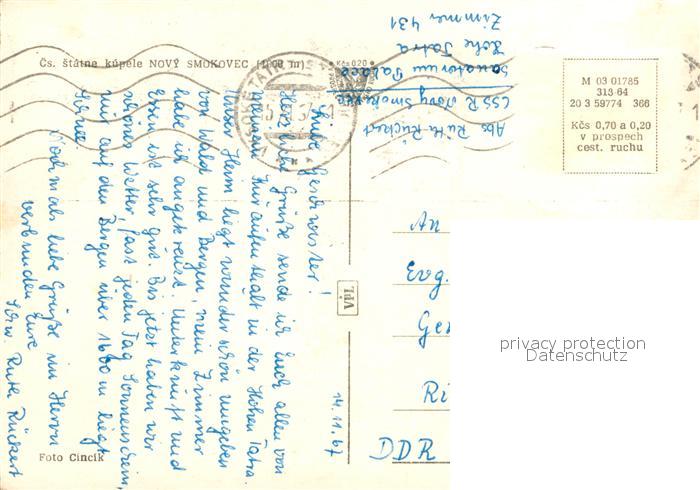 Čs. štátne kúpele NOVÝ SMOKOVEC (1000 m)
Kčs 0,20
Abs. Ruth Rückert
ČSSR Nový Smokovec
Sanatorium Palace
Hohe Tatra
Zimmer 431
M 03 01785
313 64
20 3 59774 366
Kčs 0,70 a 0,20
v prospech
cest. ruchu
Liebe Geschwister!
Herzliche Grüße sende ich Euch allen von
meinem Kuraufenthalt in der Hohen Tatra.
Unser Heim liegt wunderschön umgeben
von Wald und Bergen, mein Zimmer
habe ich angekreuzt. Unterkunft und
Essen ist sehr gut. Bis jetzt haben wir
schönes Wetter, fast jeden Tag Sonnenschein,
nur auf den Bergen über 1600 m liegt
Schnee.
Nochmals liebe Grüße im Herrn
verbunden Eure
Schw. Ruth Rückert
14.11.67
VŠĽ
An
Evg.
Ge
Ri
DDR
privacy protection
Datenschutz
Foto Cincík